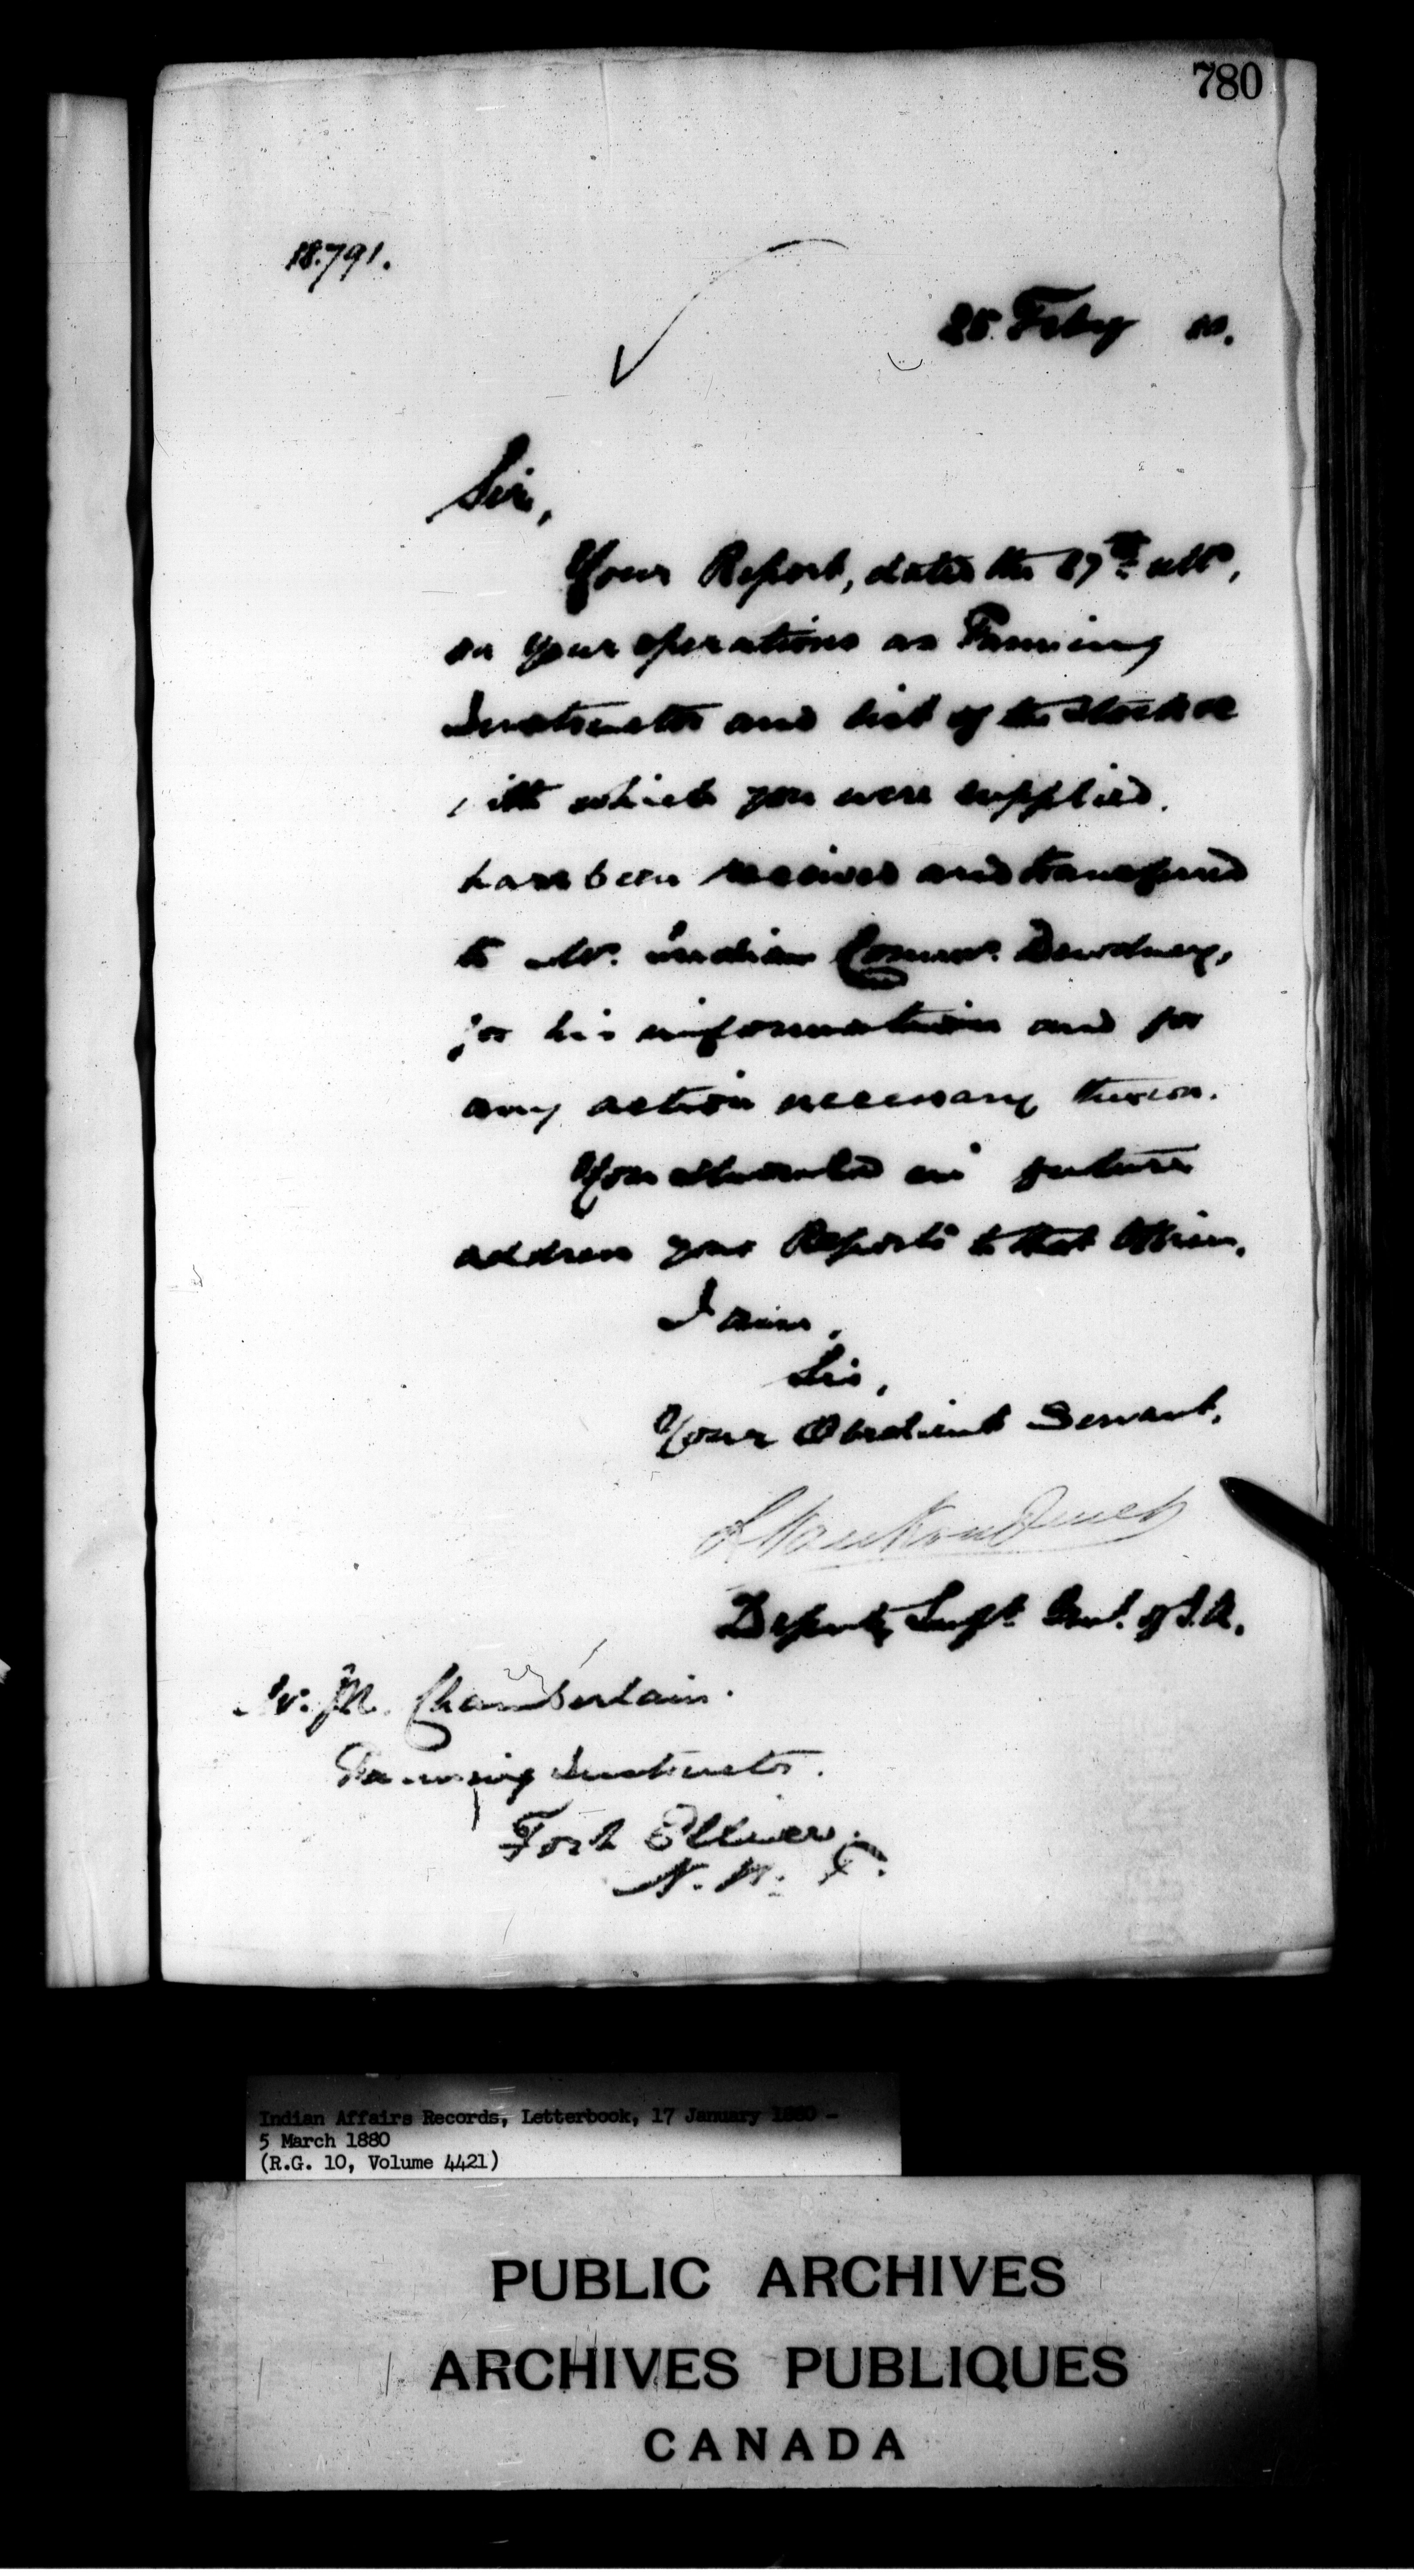 780
18.791.
25 Feby 80.
Sir,
Your Report, dated the 27th ulto,
on your operations as Farming
Instructor and list of the Stock &c
with which you were supplied.
have been received and transferred
to Mr. Indian Commr. Dewdney,
for his information and for
any action necessary thereon.
You should in future
address your Reports to that Officer.
I am,
Sir,
Your Obedient Servant,
L VanKoughnet
Deputy Supt. Genl. of I.A.
Mr. Chamberlain.
Farming Instructor.
Fort Ellice.
N. W. T.
Indian Affairs Records, Letterbook, 17 January 1880 -
5 March 1880
(R.G. 10, Volume 4421)
PUBLIC ARCHIVES
ARCHIVES PUBLIQUES
CANADA